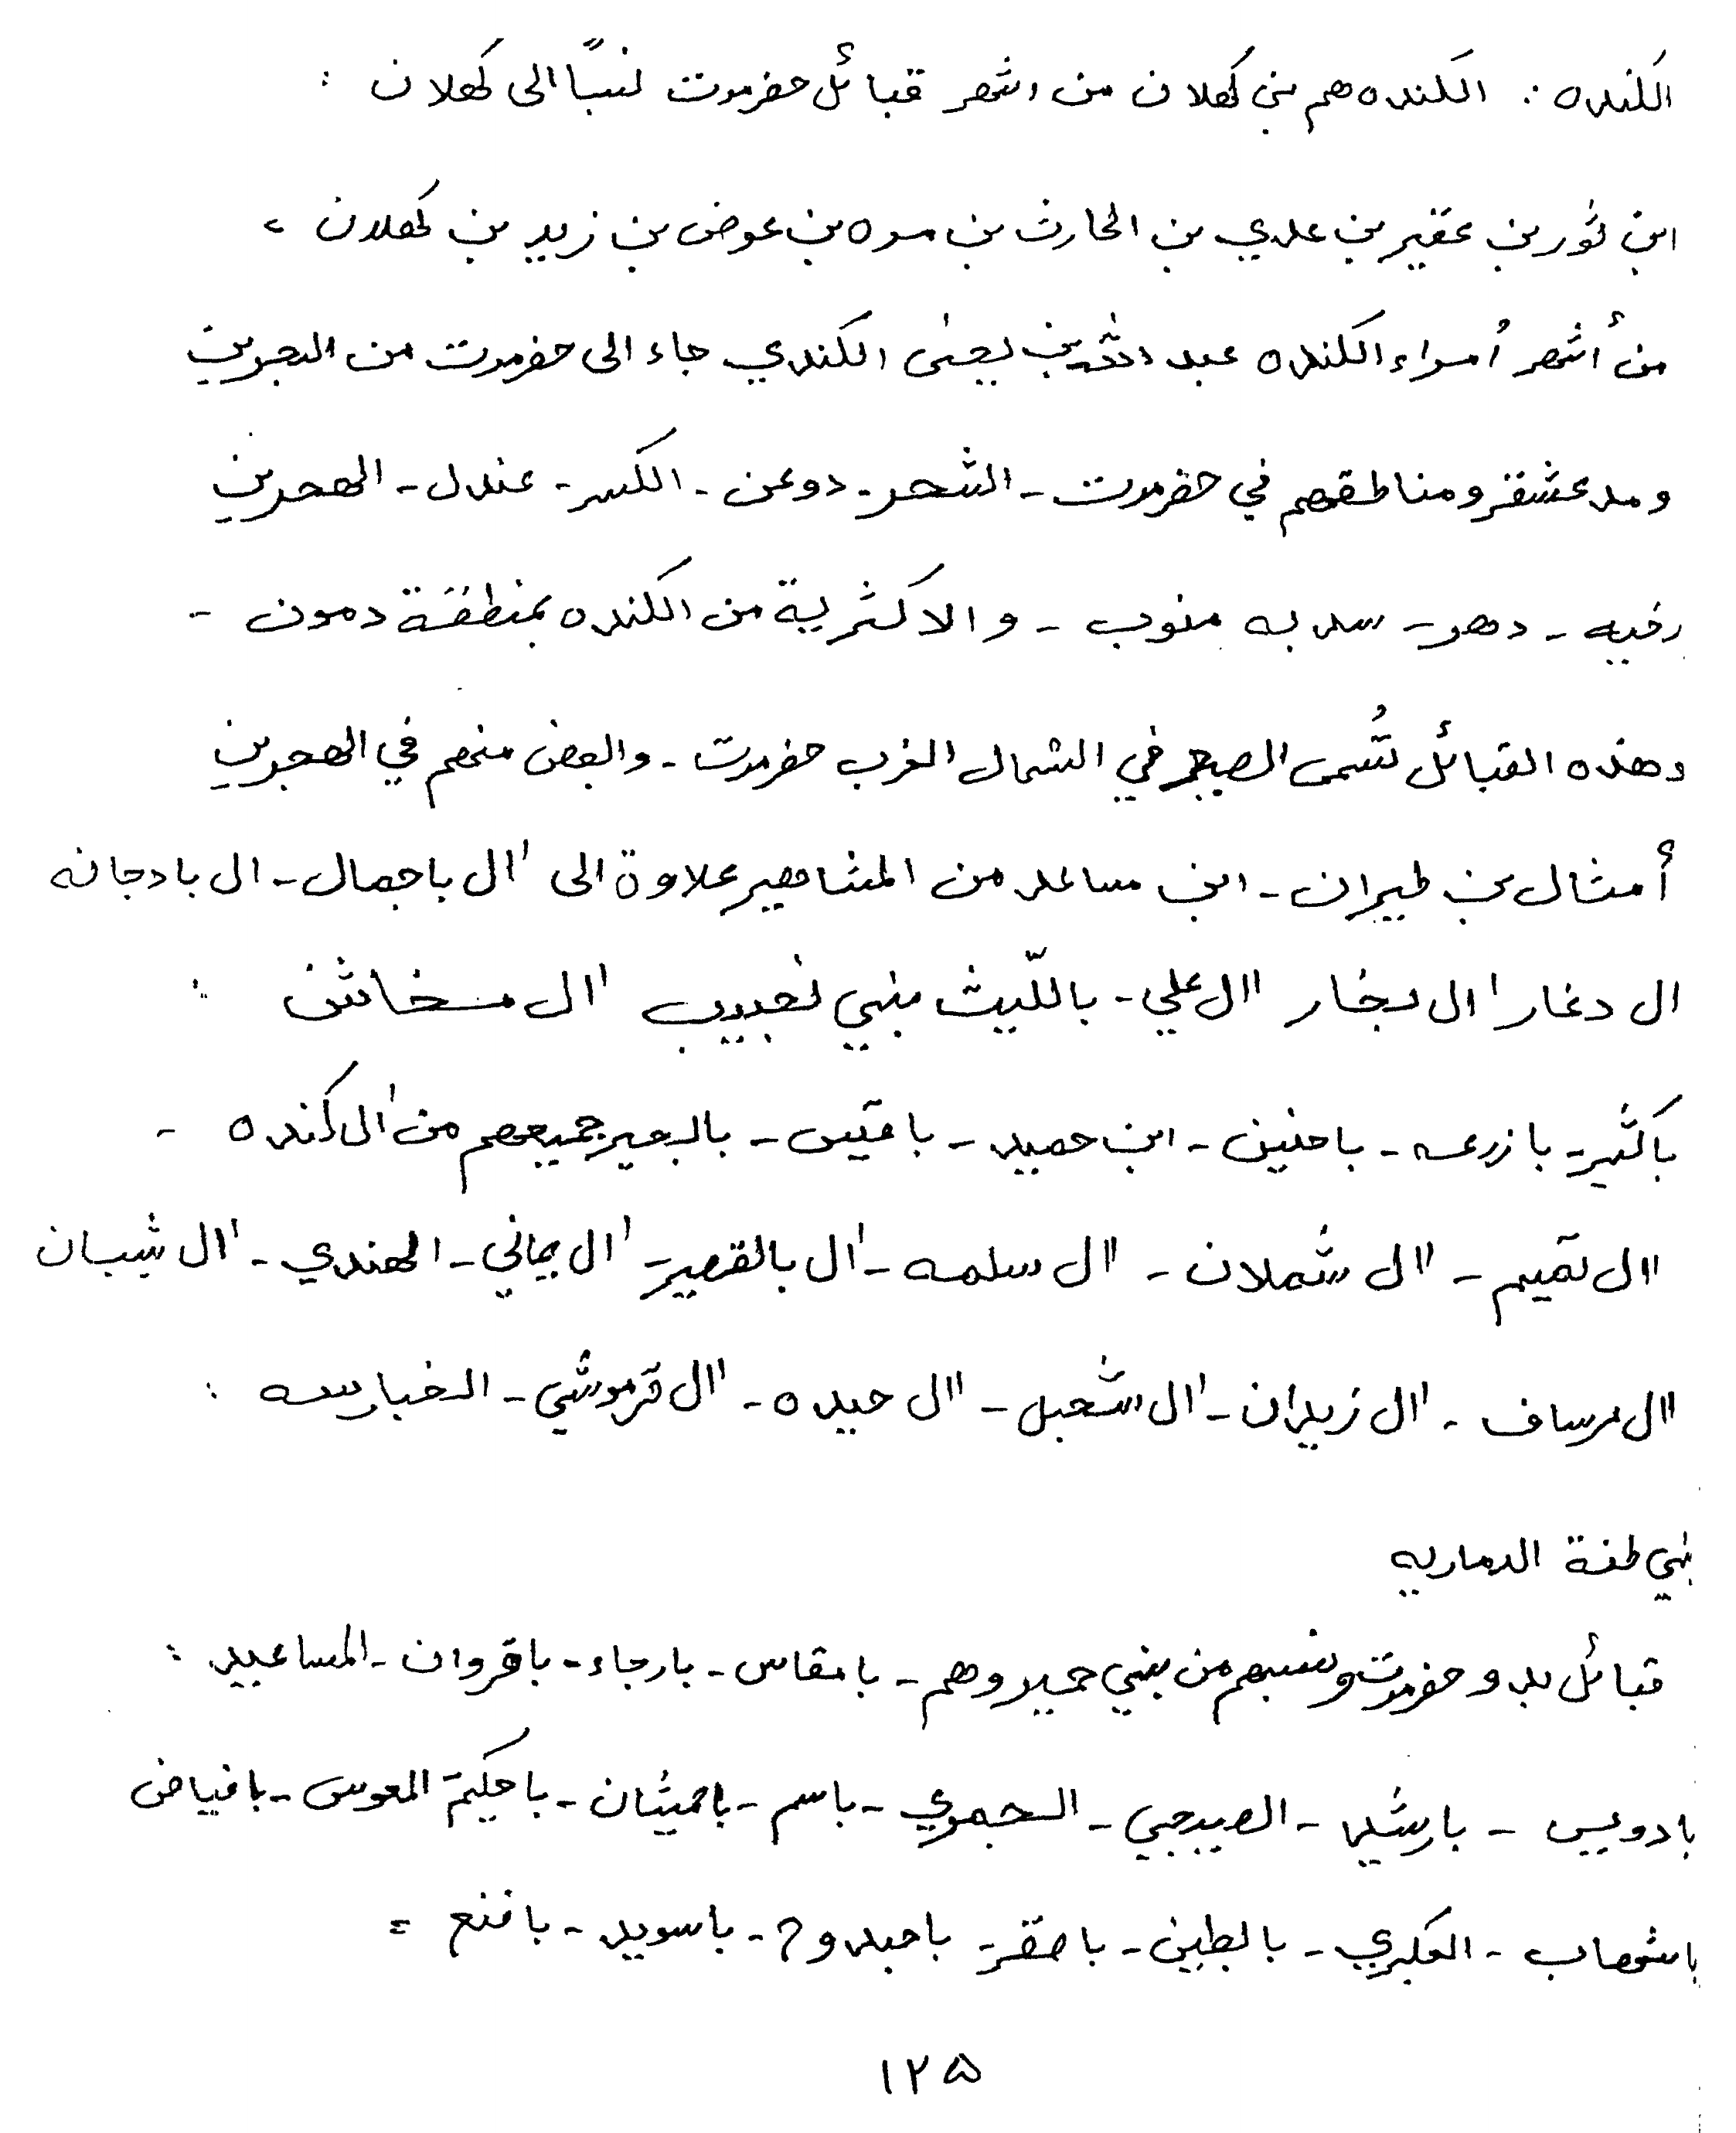 الكنده : الكنده هم بني كهلان من اشهر قبائل حضرموت نسبًا الى كهلان :
ابن ثور بن عفير بن عدي بن الحارث بن مره بن عوض بن زيد بن كهلان ،
من أشهر أُمراء الكنده عبد الله بن يحيى الكندي جاء الى حضرموت من البحرين
ومد عشقر ومناطقهم في حضرموت - الشحر - دوعن - الكسر - عندل - الهجرين
رخيه - دهر - سدبه منوب - والاكثرية من الكنده بمنطقة دمون -
وهذه القبائل تُسمى الصيعر في الشمال الغرب حضرموت - والبعض منهم في الهجرين
أمثال بن طيران - ابن مساعد من المشاهير علاوة الى ال باجمال - ال بادجانه
ال دغار ال بخار ال علي - بالليّث بني نعبيب ال مخاشن :
باكثير - بازرعه - باحنين - ابن حميد - باقيس - بالبعير جميعهم من ال كنده -
ال تميم - ال شملان - ال سلمه - ال بالقصير - ال يماني - الهندي - ال شيبان
ال مرساف - ال زيدان - ال شحبل - ال حيده - ال قرموشي - الخبارسه :
بني طنة الدماريه
قبائل بدو حضرموت ونسبهم من بني حمير وهم - بامقاس - بارجاء - باقروان - المساعبيد :
بادويس - بارشيد - الصيبرجي - الحموي - باسم - باحميشان - باحكيم المعوس - بافياض
باشهاب - العكبري - بالبطين - باصقر - باحبدوح - باسويد - بافنع =
١٢٥